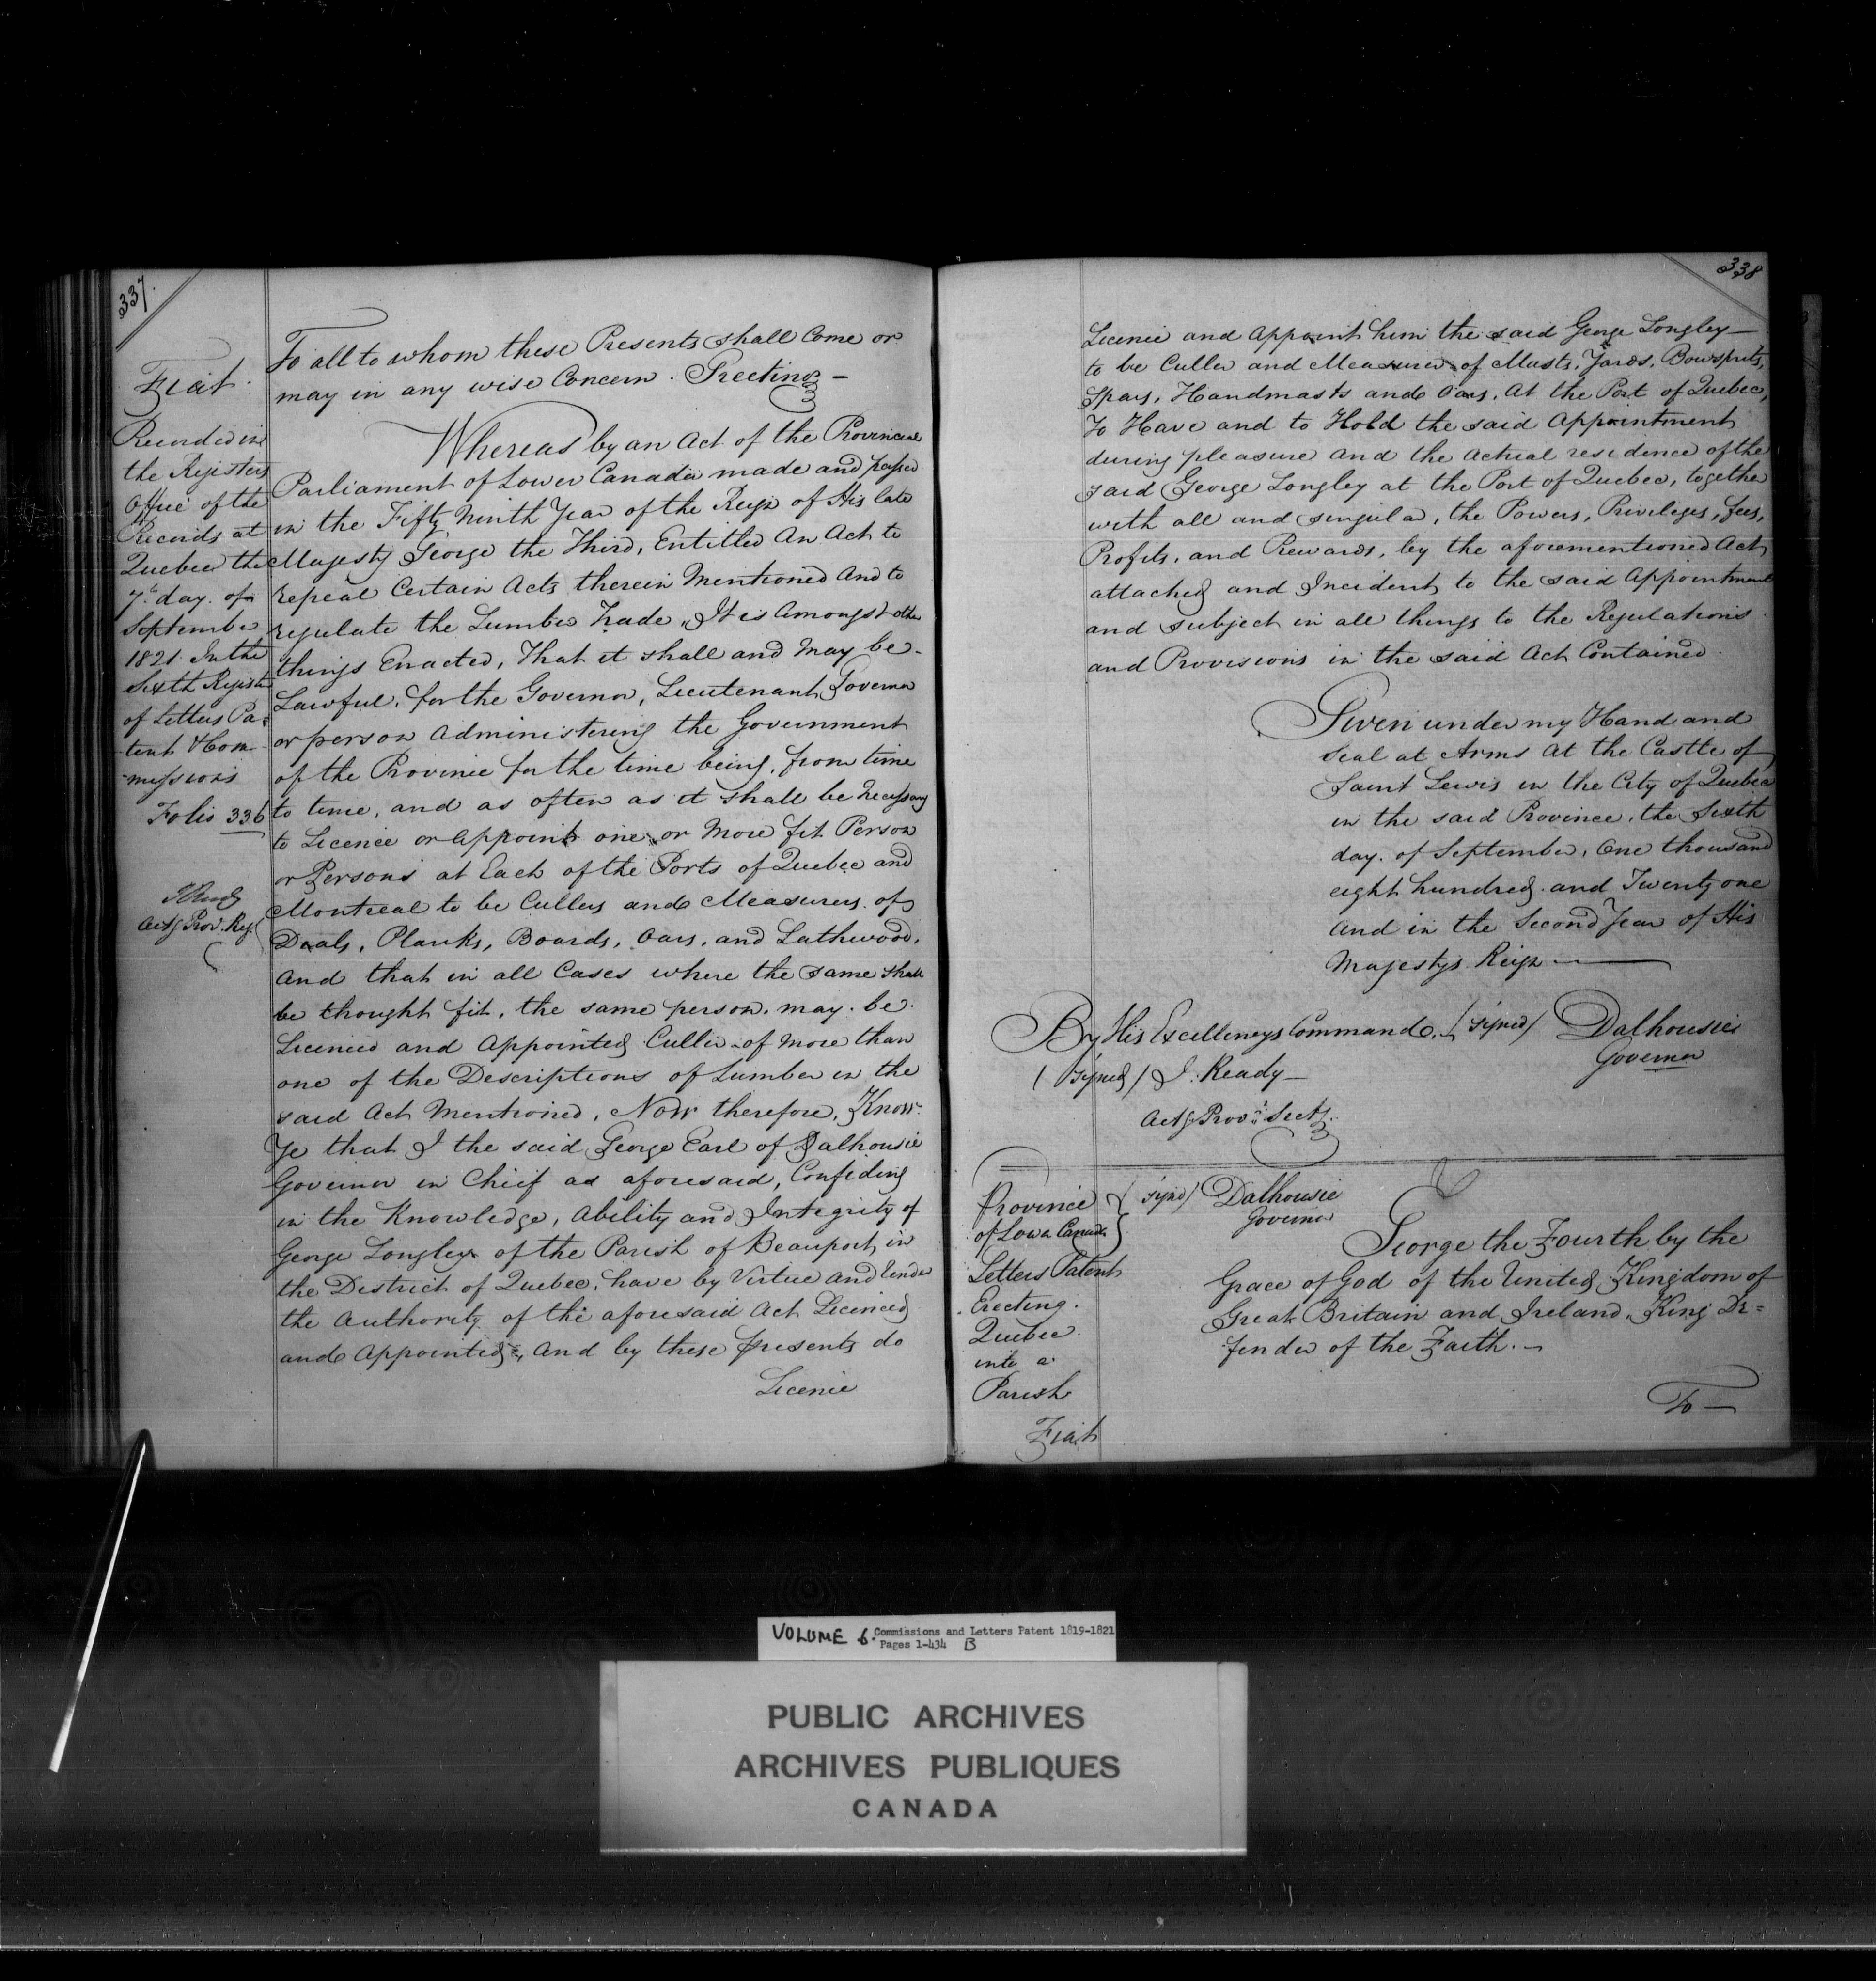 337.
Fiat
Recorded in
the Registers
Office of the
Records at
Quebec the
7th day of
September
1821 In the
Sixth Register
of Letters Pa-
tent & Com-
missions
Folio 336
J Ready
Actg Prov. Reg.
To all to whom these Presents shall Come or
may in any wise Concern. Greeting —
Whereas by an Act of the Provincial
Parliament of Lower Canada made and passed
in the Fifty Ninth Year of the Reign of His late
Majesty George the Third, Entitled An Act to
repeal Certain Acts therein Mentioned And to
regulate the Lumber Trade, It is Amongst other
things Enacted, That it shall and may be
Lawful, for the Governor, Lieutenant Governor
or person Administering the Government
of the Province for the time being, from time
to time, and as often as it shall be necessary
to Licence or Appoint one or More fit Person
or Persons at Each of the Ports of Quebec and
Montreal to be Cullers and Measurers of
Deals, Planks, Boards, Oars, and Lathwood,
And that in all Cases where the same shall
be thought fit, the same person may be
Licenced and Appointed Culler of more than
one of the Descriptions of Lumber in the
said Act Mentioned, Now therefore, Know
Ye that I the said George Earl of Dalhousie
Governor in Chief as aforesaid, Confiding
in the Knowledge, Ability and Integrity of
George Longley of the Parish of Beauport, in
the District of Quebec, have by Virtue and Under
the Authority of the aforesaid Act Licenced
and Appointed, And by these presents do
Licence
338
Licence and Appoint him the said George Longley —
to be Culler and Measurer of Masts, Yards, Bowsprits,
Spars, Handmasts and Oars, At the Port of Quebec,
To Have and to Hold the said Appointment
during pleasure and the actual residence of the
said George Longley at the Port of Quebec, together
with all and singular, the Powers, Privileges, fees,
Profits, and Rewards, by the aforementioned Act
attached and Incident to the said Appointment
and subject in all things to the Regulations
and Provisions in the said Act Contained.
Given under my Hand and
Seal at Arms At the Castle of
Saint Lewis in the City of Quebec
in the said Province, the Sixth
day of September, One thousand
eight hundred and Twenty one
And in the Second Year of His
Majestys Reign —
By His Excellencys Command, (signed) Dalhousie
Governor
(signed) J. Ready —
Actg Provl Secty.
Province
of Lower Canada
(signd) Dalhousie
Governor
Letters Patent
Erecting
Quebec
into a
Parish
Fiat
George the Fourth by the
Grace of God of the United Kingdom of
Great Britain and Ireland, King De=
fender of the Faith. —
To —
VOLUME 6. Commissions and Letters Patent 1819-1821
Pages 1-434 B
PUBLIC ARCHIVES
ARCHIVES PUBLIQUES
CANADA